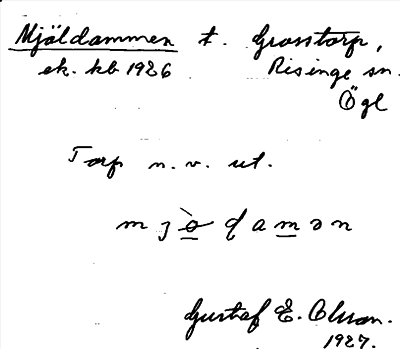 Mjäldammen t. Grosstorp,
ek. kb 1926 Risinge sn.
Ögl
Torp n. v. ut.
Gustaf E. Olson.
1927.